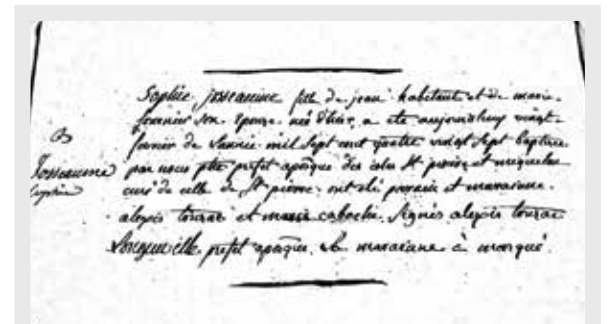 Sophie josseaume fille de jean habitant et de marie
fournier son epouse née d'hier a ete aujourdhuy vingt
janvier de l'année mil sept cent quatre vingt sept baptisée
B
par nous ptre prefet aptique des isles St pierre et miquelon
Josseaume
curé de celle de St pierre ont été parain et maraine
Sophie
alexis touzac et marie caboche. signés alexis touzac
Longueville prefet aptique. la maraine a marqué.